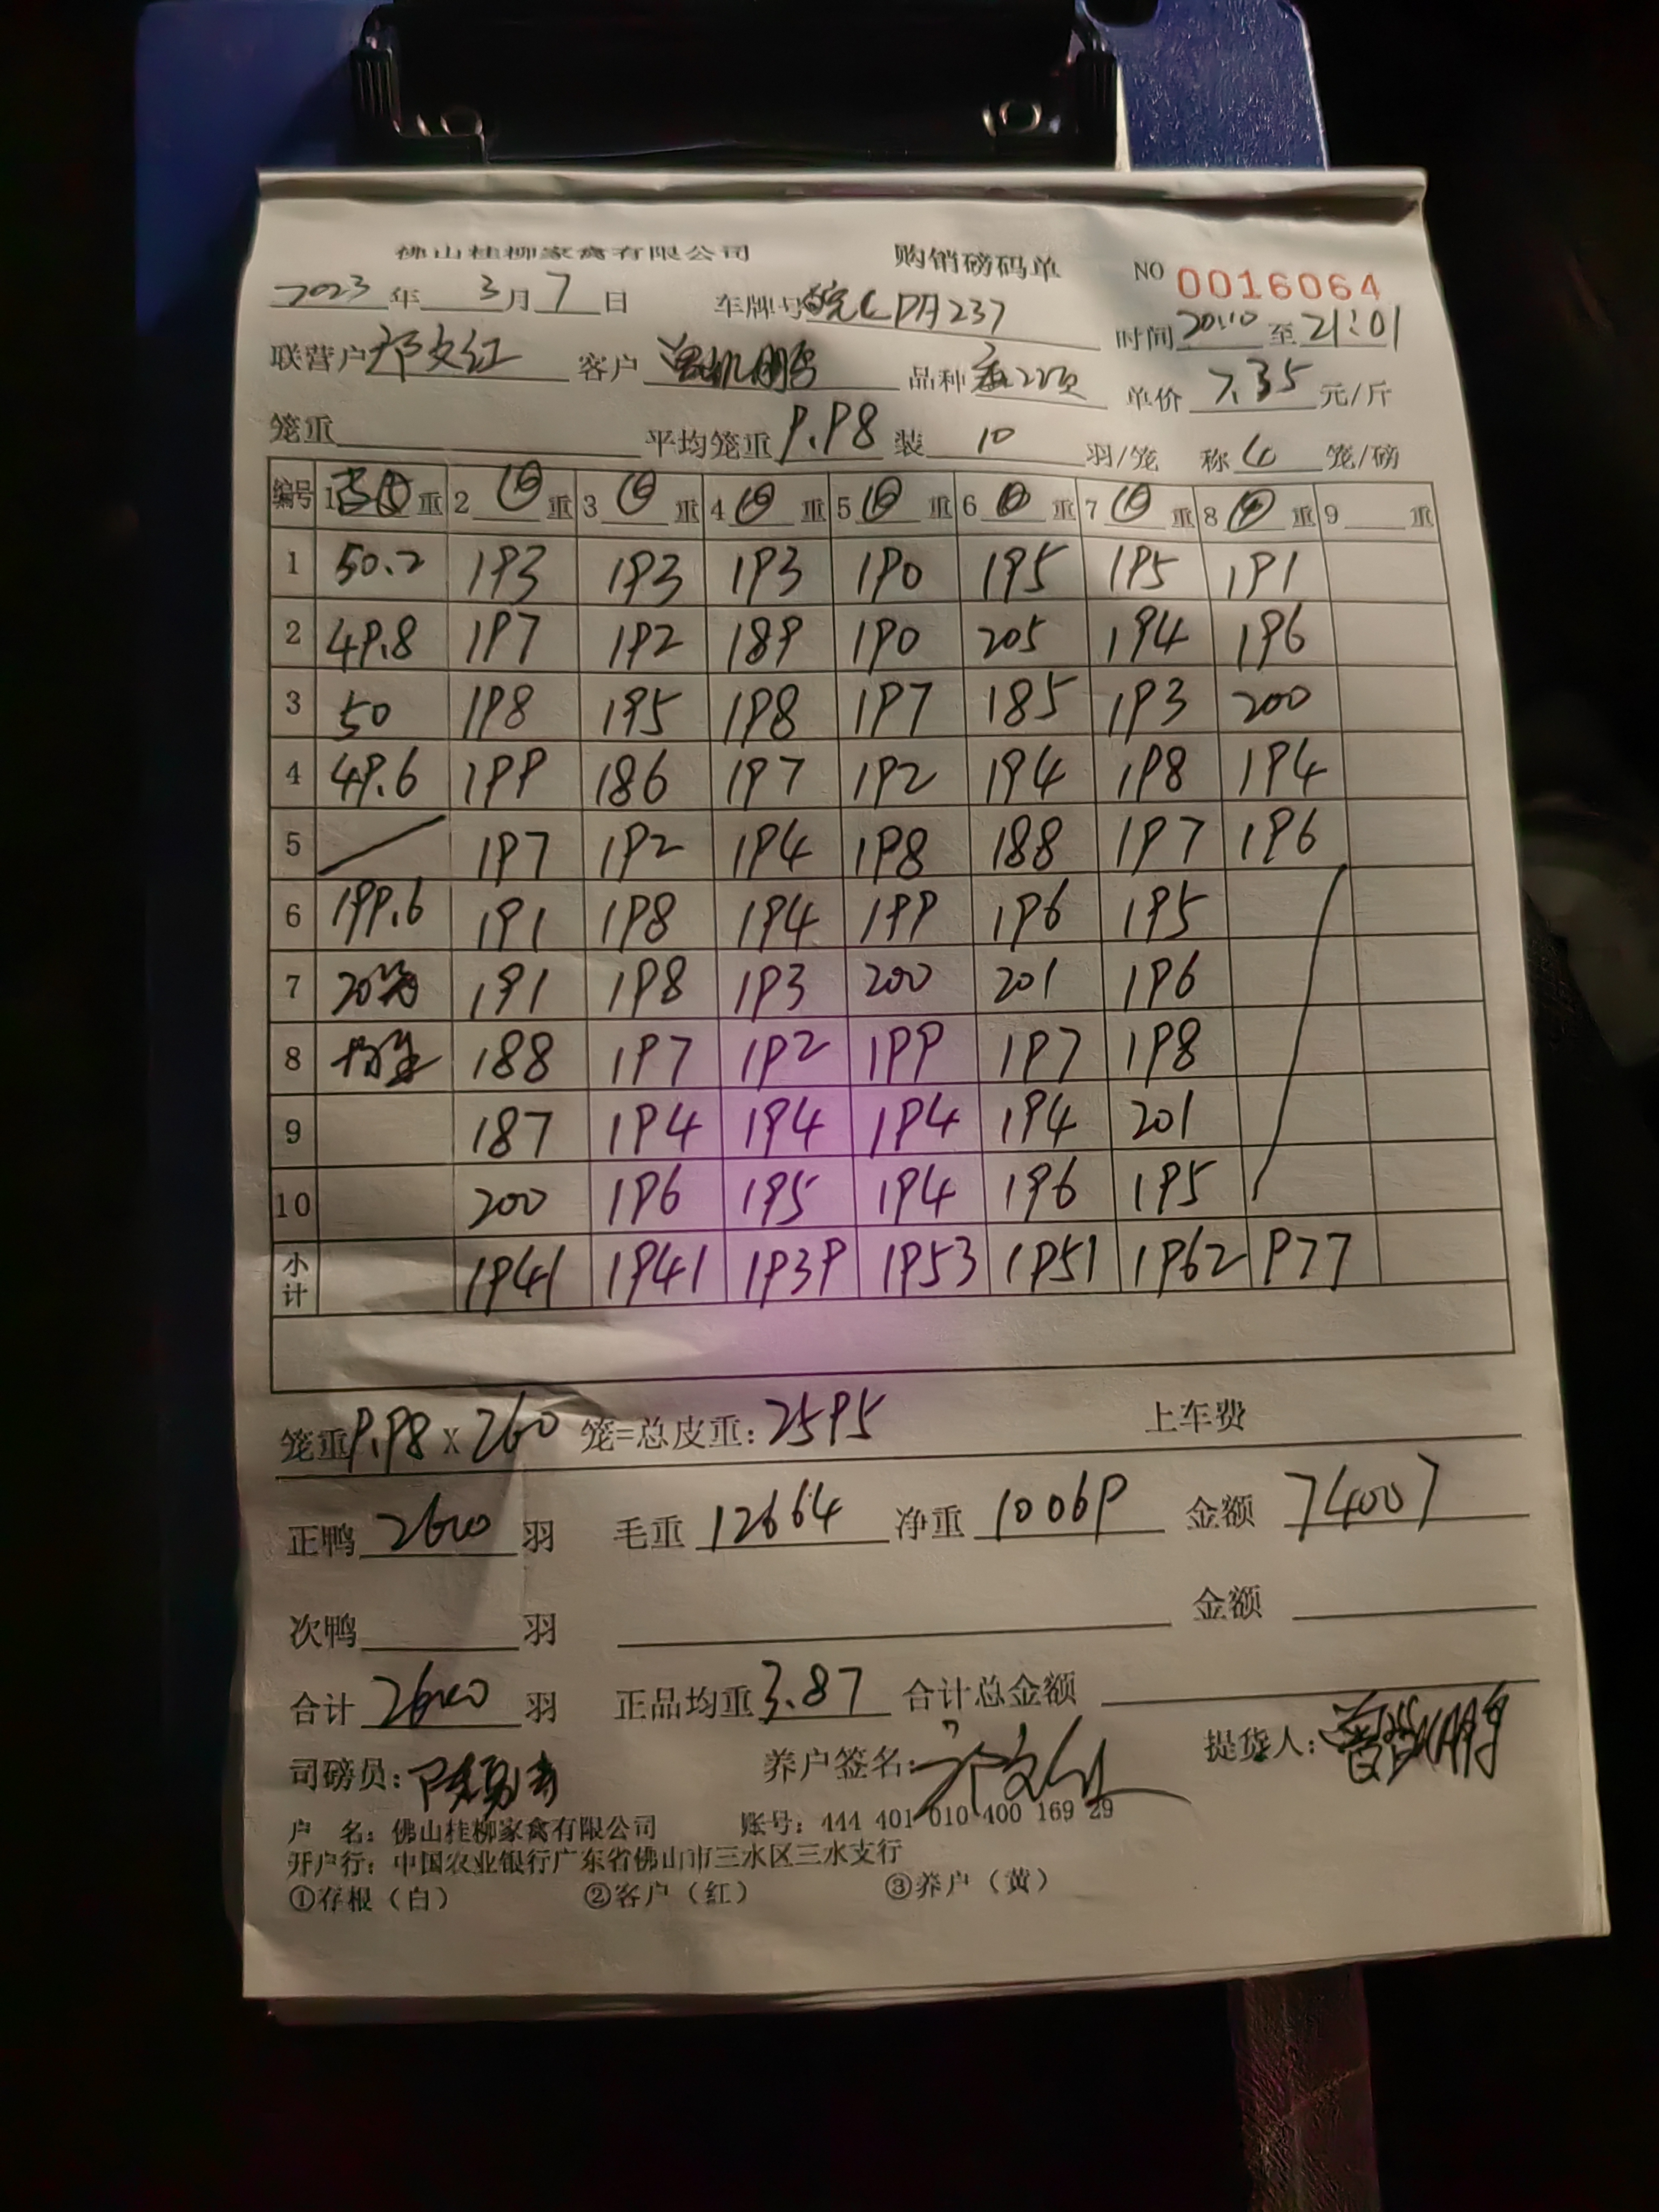 佛山桂柳家禽有限公司 购销磅码单 NO 0016064
2023年 3月 7日 车牌号 皖CDA237 时间 20:10 至 21:01
联营户 邓文红 客户 品种 单价 7.35 元/斤
笼重 平均笼重 9.98 装 10 羽/笼 称 4 笼/磅
编号 1 重 2 重 3 重 4 重 5 重 6 重 7 重 8 重 9 重
1 50.2 193 193 193 190 195 195 191
2 49.8 197 192 189 190 205 194 196
3 50 198 195 198 197 185 193 200
4 49.6 199 186 197 192 194 198 194
5 197 192 194 198 188 197 196
6 199.6 191 198 194 199 196 195
7 20笼 191 198 193 200 201 196
8 188 197 192 199 197 198
9 187 194 194 194 194 201
10 200 196 195 194 196 195
小计 1941 1941 1939 1953 1951 1962 977
笼重 9.98 X 260 笼=总皮重: 2595 上车费
正鸭 2600 羽 毛重 12664 净重 10069 金额 74007
次鸭 羽 金额
合计 2600 羽 正品均重 3.87 合计总金额
司磅员: 养户签名: 邓文红 提货人:
户 名: 佛山桂柳家禽有限公司 账号: 444 401 010 400 169 29
开户行: 中国农业银行广东省佛山市三水区三水支行
①存根(白) ②客户(红) ③养户(黄)